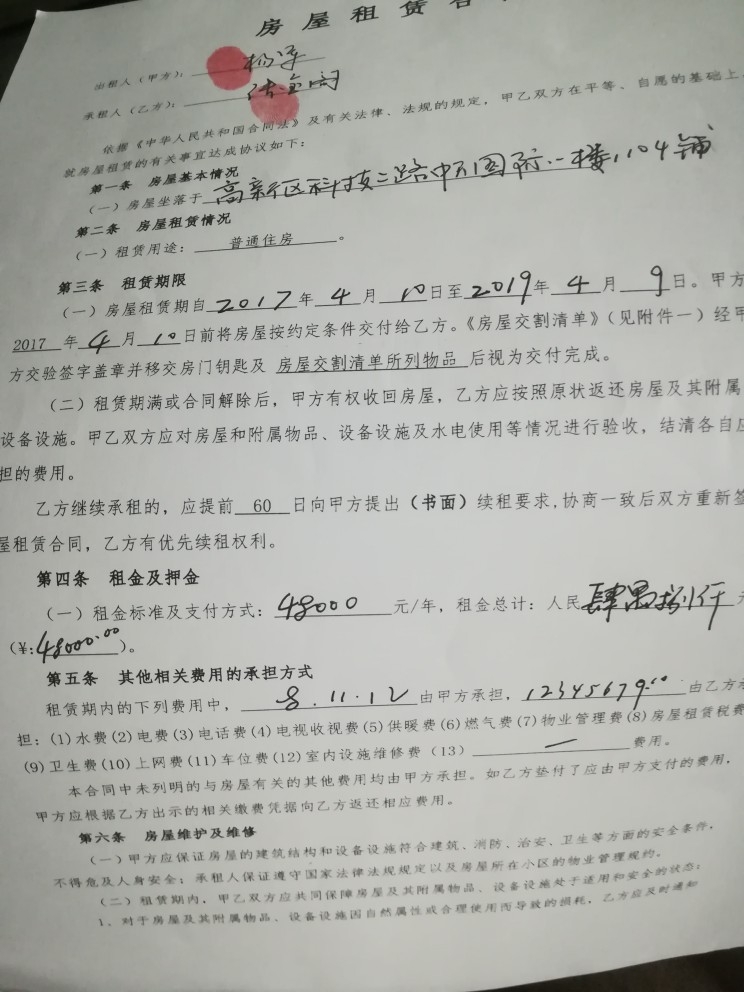 房屋租赁合
出租人（甲方）： 杨平
承租人（乙方）：
依据《中华人民共和国合同法》及有关法律、法规的规定，甲乙双方在平等、自愿的基础上，
就房屋租赁的有关事宜达成协议如下：
第一条 房屋基本情况
（一）房屋坐落于 高新区科技二路中天国际一楼104铺
第二条 房屋租赁情况
（一）租赁用途： 普通住房 。
第三条 租赁期限
（一）房屋租赁期自 2017 年 4 月 10 日至 2019 年 4 月 9 日。甲方
2017 年 4 月 10 日前将房屋按约定条件交付给乙方。《房屋交割清单》（见附件一）经甲
方交验签字盖章并移交房门钥匙及 房屋交割清单所列物品 后视为交付完成。
（二）租赁期满或合同解除后，甲方有权收回房屋，乙方应按照原状返还房屋及其附属
设备设施。甲乙双方应对房屋和附属物品、设备设施及水电使用等情况进行验收，结清各自应
担的费用。
乙方继续承租的，应提前 60 日向甲方提出（书面）续租要求,协商一致后双方重新签
屋租赁合同，乙方有优先续租权利。
第四条 租金及押金
（一）租金标准及支付方式： 48000 元/年，租金总计：人民 肆萬捌仟 元
（¥: 48000.00 ）。
第五条 其他相关费用的承担方式
租赁期内的下列费用中， 8.11.12 由甲方承担， 12345679.10 由乙方承
担：(1)水费(2)电费(3)电话费(4)电视收视费(5)供暖费(6)燃气费(7)物业管理费(8)房屋租赁税费
(9)卫生费(10)上网费(11)车位费(12)室内设施维修费（13） — 费用。
本合同中未列明的与房屋有关的其他费用均由甲方承担。如乙方垫付了应由甲方支付的费用，
甲方应根据乙方出示的相关缴费凭据向乙方返还相应费用。
第六条 房屋维护及维修
（一）甲方应保证房屋的建筑结构和设备设施符合建筑、消防、治安、卫生等方面的安全条件，
不得危及人身安全；承租人保证遵守国家法律法规规定以及房屋所在小区的物业管理规约。
（二）租赁期内，甲乙双方应共同保障房屋及其附属物品、设备设施处于适用和安全的状态：
1、对于房屋及其附属物品、设备设施因自然属性或合理使用而导致的损耗，乙方应及时通知